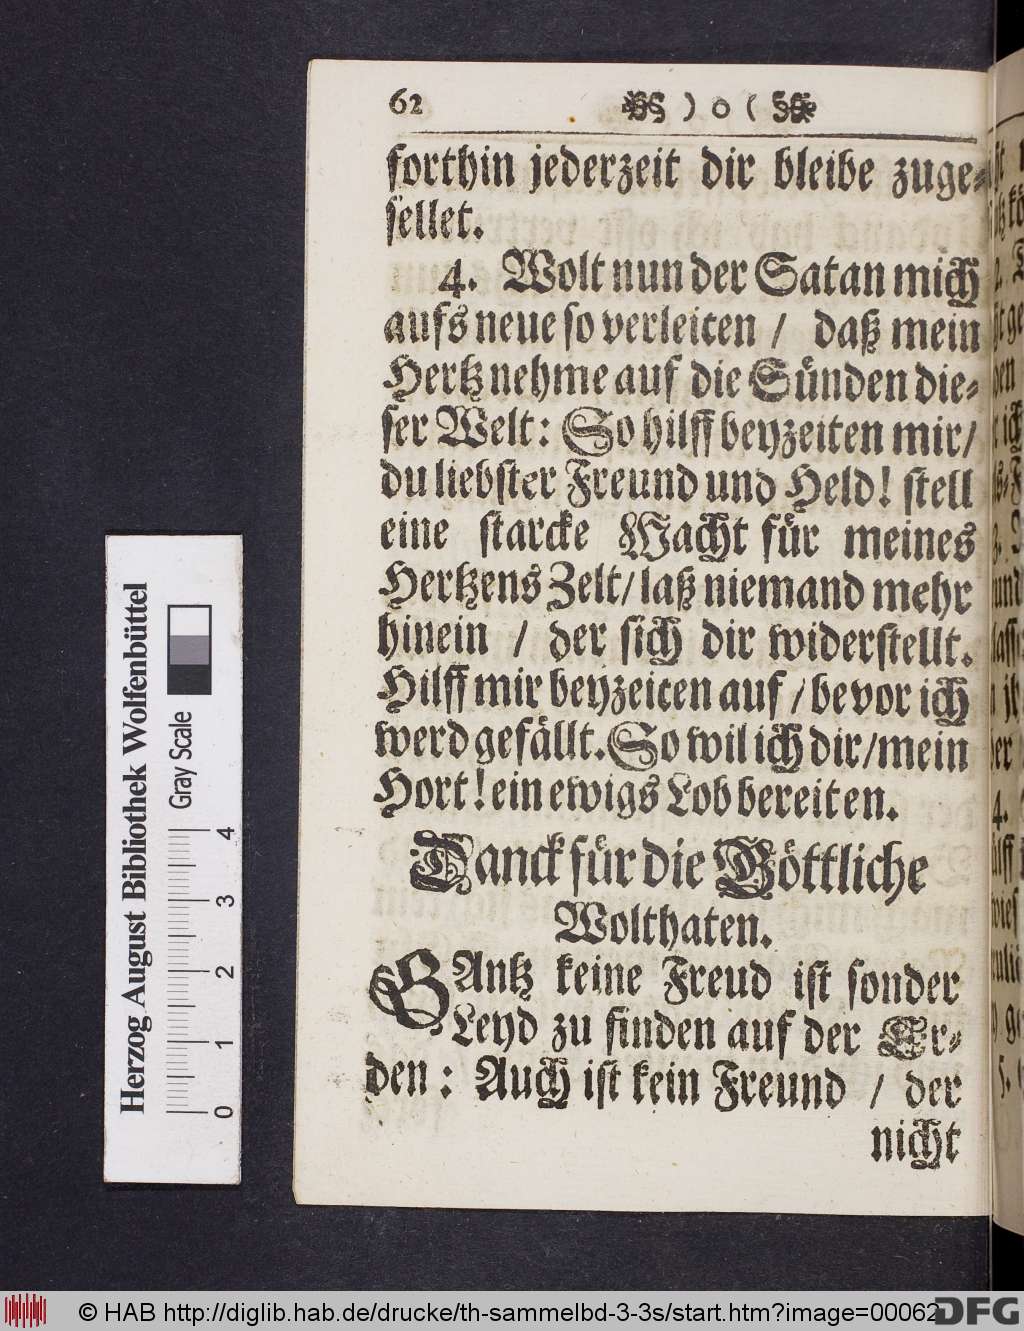 62 ) o (
forthin jederzeit dir bleibe zuge-
sellet.
4. Wolt nun der Satan mich
aufs neue so verleiten / daß mein
Hertz nehme auf die Sünden die-
ser Welt: So hilff beyzeiten mir/
du liebster Freund und Held! stell
eine starcke Wacht für meines
Hertzens Zelt/ laß niemand mehr
hinein / der sich dir widerstellt.
Hilff mir beyzeiten auf / bevor ich
werd gefällt. So wil ich dir/ mein
Hort! ein ewigs Lob bereiten.
Danck für die Göttliche
Wolthaten.
GAntz keine Freud ist sonder
Leyd zu finden auf der Er-
den : Auch ist kein Freund / der
nicht
Herzog August Bibliothek Wolfenbüttel
Gray Scale
0 1 2 3 4
© HAB http://diglib.hab.de/drucke/th-sammelbd-3-3s/start.htm?image=00062
DFG